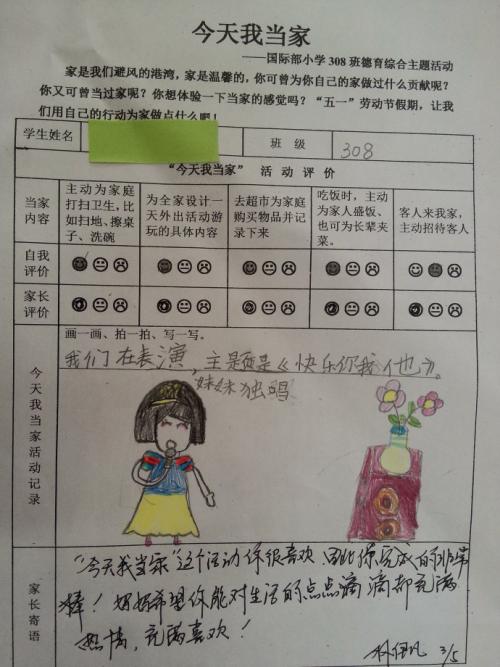 今天我当家
——国际部小学308班德育综合主题活动
家是我们避风的港湾，家是温馨的，你可曾为你自己的家做过什么贡献呢？
你又可曾当过家呢？你想体验一下当家的感觉吗？“五一”劳动节假期，让我
们用自己的行动为家做点什么吧！
学生姓名 班 级 308
“今天我当家” 活 动 评 价
当家
内容
主动为家庭
打扫卫生，比
如扫地、擦桌
子、洗碗
为全家设计一
天外出活动游
玩的具体内容
去超市为家庭
购买物品并记
录下来
吃饭时，主动
为家人盛饭、
也可为长辈夹
菜。
客人来我家，
主动招待客人
自我
评价
家长
评价
今天我当家活动记录
画一画、拍一拍、写一写。
我们在表演，主题是《快乐你我他》。
妹妹独唱
家长寄语
“今天我当家”这个活动你很喜欢，因此你完成的非常
棒！妈妈希望你能对生活的点点滴滴都充满
热情，充满喜欢！
3/5